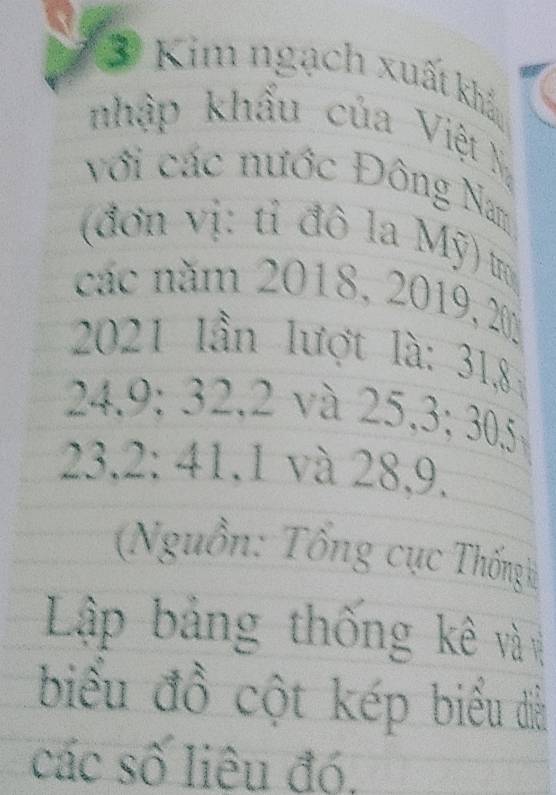 3 Kim ngạch xuất khẩu
nhập khẩu của Việt
với các nước Đông Nam
(đơn vị: tỉ đô la Mỹ)
các năm 2018, 2019,
2021 lần lượt là: 31,8
24,9; 32,2 và 25,3; 30,5
23,2; 41,1 và 28,9.
(Nguồn: Tổng cục Thống
Lập bảng thống kê và
biểu đồ cột kép biểu
các số liệu đó.